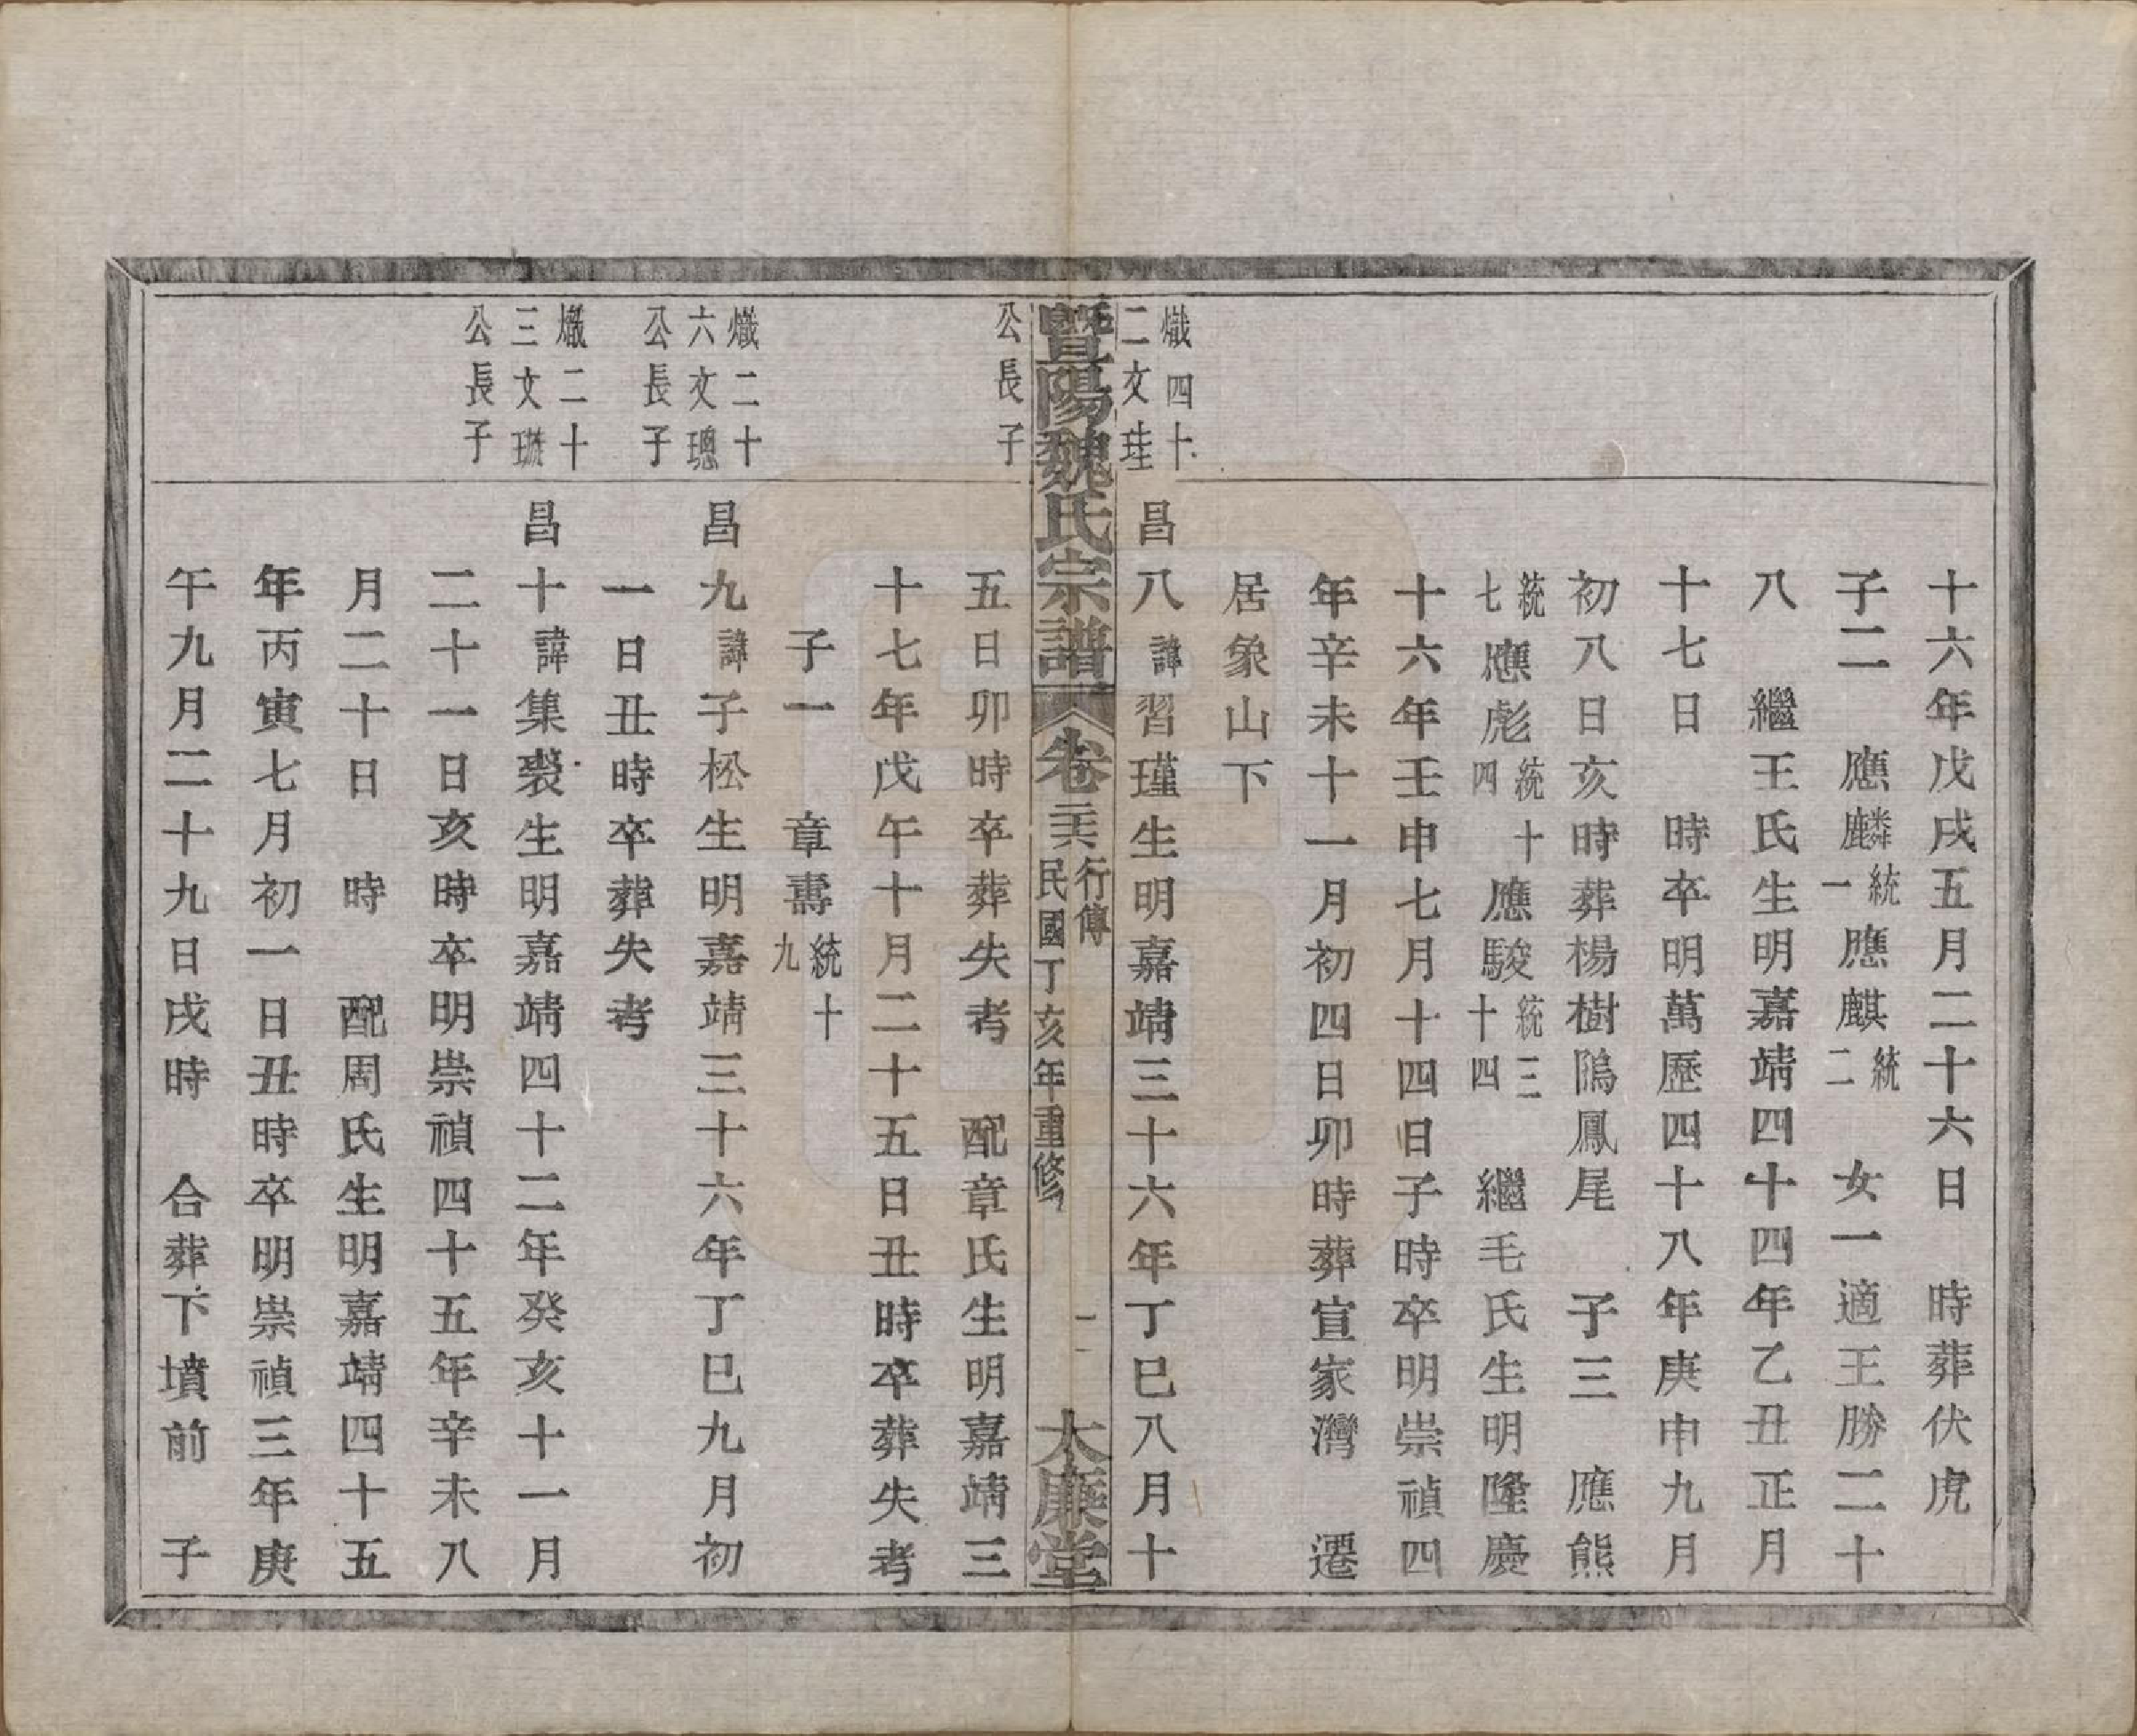 十六年戊戌五月二十六日　時葬伏虎
子二　應麟統一應麒統二　女一適王勝二十
八　繼王氏生明嘉靖四十四年乙丑正月
十七日　時卒明萬歷四十八年庚申九月
初八日亥時葬楊樹隖鳳尾　子三　應熊
統七應彪統十四應駿統三十四　繼毛氏生明隆慶
十六年壬申七月十四日子時卒明崇禎四
年辛未十一月初四日卯時葬宣家灣　遷
居象山下
熾四十二文珪
昌八諱習瑾生明嘉靖三十六年丁巳八月十
暨陽魏氏宗譜　卷二六　行傳　民國丁亥年重修　一　大廉堂
公長子
五日卯時卒葬失考　配章氏生明嘉靖三
十七年戊午十月二十五日丑時卒葬失考
子一　章壽統十九
熾二十六文璁公長子
昌九諱子松生明嘉靖三十六年丁巳九月初
一日丑時卒葬失考
熾二十三文公長子
昌十諱集裂生明嘉靖四十二年癸亥十一月
二十一日亥時卒明崇禎四十五年辛未八
月二十日　時　配周氏生明嘉靖四十五
年丙寅七月初一日丑時卒明崇禎三年庚
午九月二十九日戌時　合葬下墳前　子